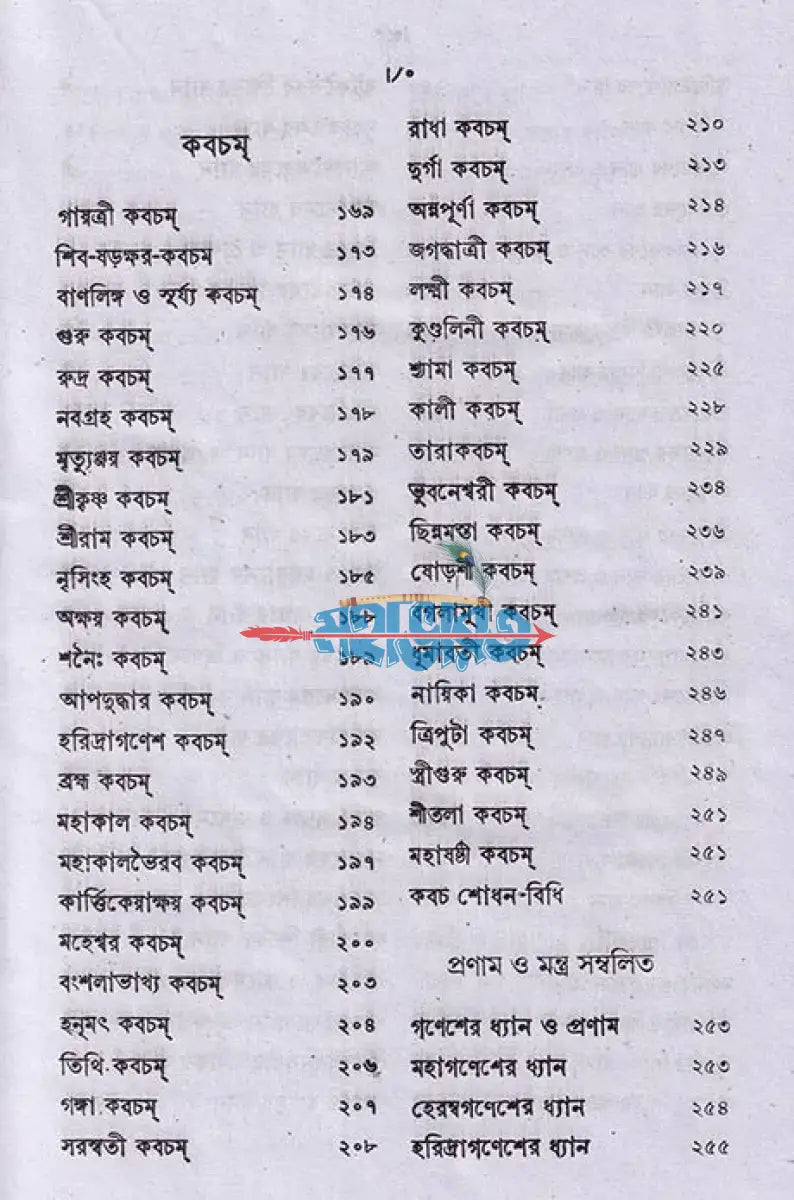 ৷/০
কবচম্
গায়ত্রী কবচম্ ১৬৯
শিব-ষড়ক্ষর-কবচম ১৭৩
বাণলিঙ্গ ও সূর্য্য কবচম্ ১৭৪
গুরু কবচম্ ১৭৬
রুদ্র কবচম্ ১৭৭
নবগ্রহ কবচম্ ১৭৮
মৃত্যুঞ্জয় কবচম্ ১৭৯
শ্রীকৃষ্ণ কবচম্ ১৮১
শ্রীরাম কবচম্ ১৮৩
নৃসিংহ কবচম্ ১৮৫
অক্ষয় কবচম্ ১৮৮
শনৈঃ কবচম্ ১৮৯
আপদুদ্ধার কবচম্ ১৯০
হরিদ্রাগণেশ কবচম্ ১৯২
ব্রহ্ম কবচম্ ১৯৩
মহাকাল কবচম্ ১৯৪
মহাকালভৈরব কবচম্ ১৯৭
কার্ত্তিকেয়াক্ষয় কবচম্ ১৯৯
মহেশ্বর কবচম্ ২০০
বংশলাভাখ্য কবচম্ ২০৩
হনূমৎ কবচম্ ২০৪
তিথি কবচম্ ২০৬
গঙ্গা কবচম্ ২০৭
সরস্বতী কবচম্ ২০৮
রাধা কবচম্ ২১০
দুর্গা কবচম্ ২১৩
অন্নপূর্ণা কবচম্ ২১৪
জগদ্ধাত্রী কবচম্ ২১৬
লক্ষ্মী কবচম্ ২১৭
কুণ্ডলিনী কবচম্ ২২০
শ্যামা কবচম্ ২২৫
কালী কবচম্ ২২৮
তারাকবচম্ ২২৯
ভুবনেশ্বরী কবচম্ ২৩৪
ছিন্নমস্তা কবচম্ ২৩৬
ষোড়শী কবচম্ ২৩৯
বগলামুখী কবচম্ ২৪১
ধূমাবতী কবচম্ ২৪৩
নায়িকা কবচম্ ২৪৬
ত্রিপুটা কবচম্ ২৪৭
স্ত্রীগুরু কবচম্ ২৪৯
শীতলা কবচম্ ২৫১
মহাষষ্ঠী কবচম্ ২৫১
কবচ শোধন-বিধি ২৫১
প্রণাম ও মন্ত্র সম্বলিত
গণেশের ধ্যান ও প্রণাম ২৫৩
মহাগণেশের ধ্যান ২৫৩
হেরম্বগণেশের ধ্যান ২৫৪
হরিদ্রাগণেশের ধ্যান ২৫৫